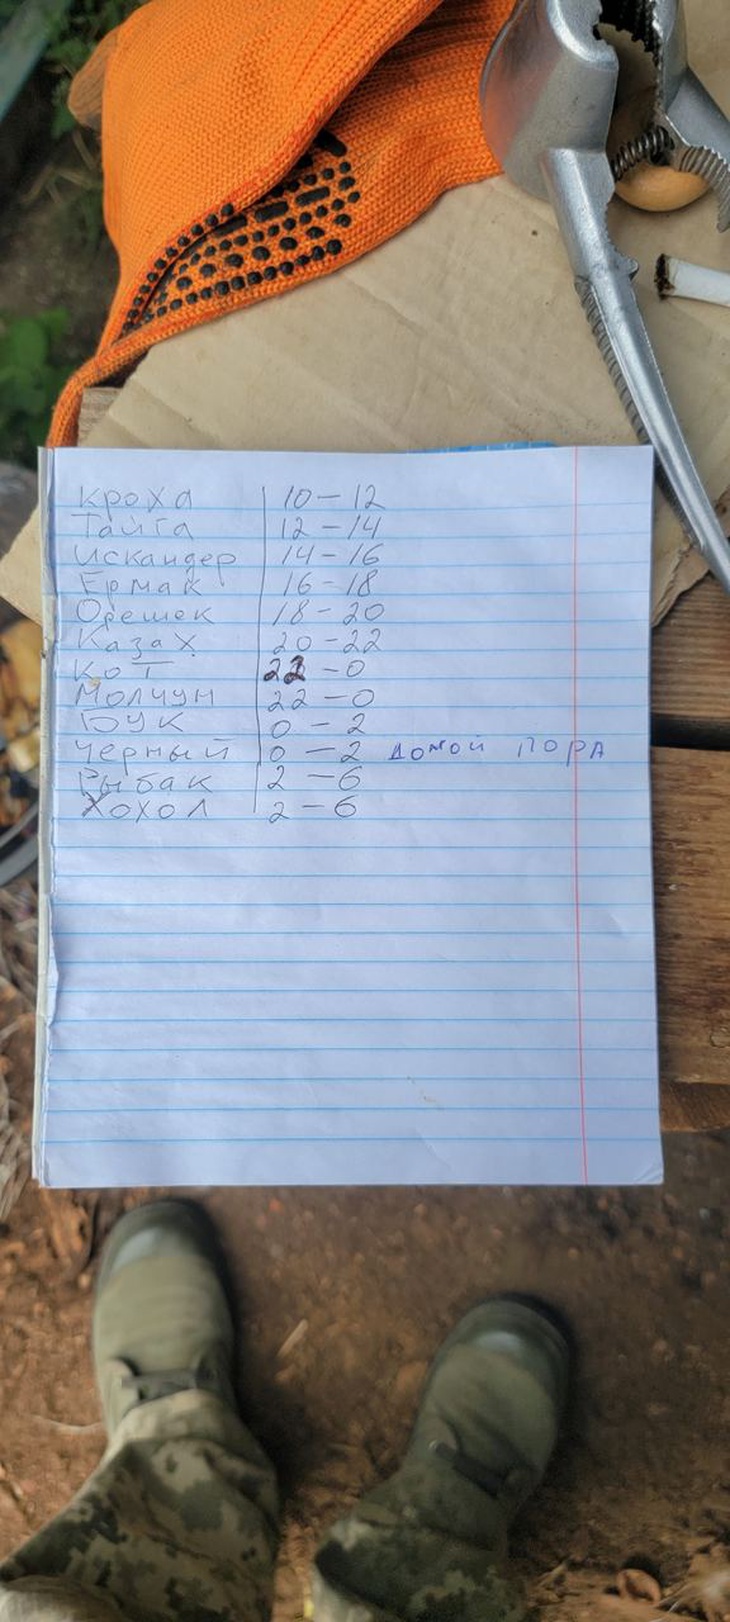 Кроха 10 – 12
Тайга 12 – 14
Искандер 14 – 16
Ермак 16 – 18
Орешек 18 – 20
Казах 20 – 22
Кот 22 – 0
Молчун 22 – 0
Бук 0 – 2
Черный 0 – 2 домой пора
Рыбак 2 – 6
Хохол 2 – 6